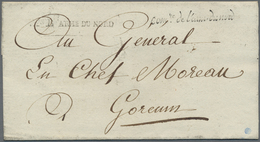 ARMÉE DU NORD
Au General
En Chef Moreau
Gorcum